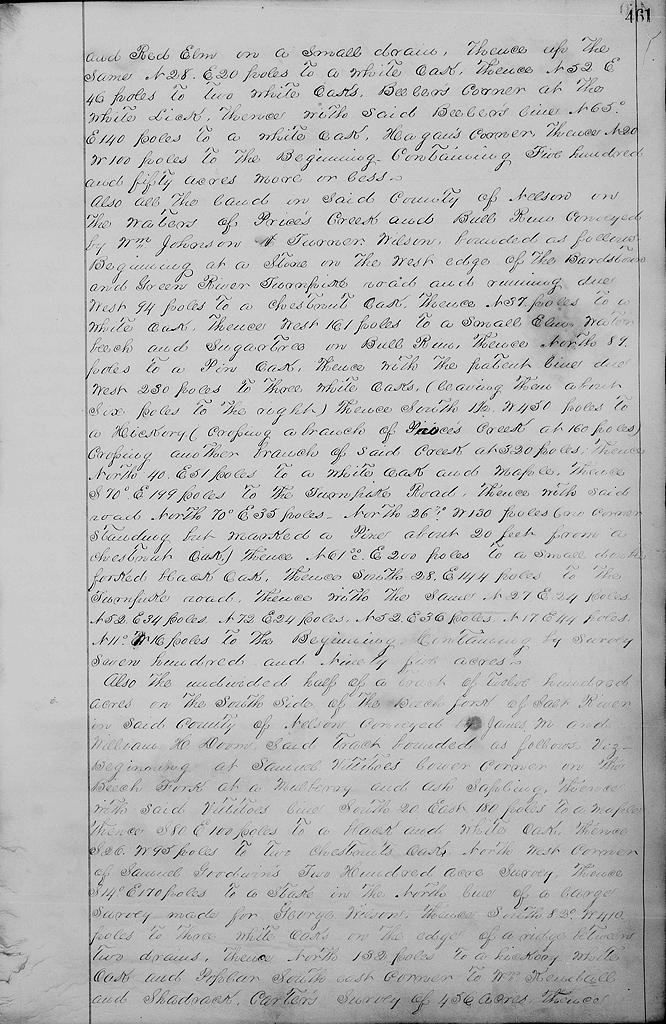 461
and Red Elm on a Small drain, Thence up the
Same N 28. E 20 poles to a white Oak, Thence N 52 E
46 poles to two white Oaks. Beelers Corner at the
White Lick, Thence with Said Beelers line N 65°
E 140 poles to a white Oak, Hagan's Corner, Thence N 20
W 100 poles to the Beginning. Containing Five hundred
and fifty acres more or less.
Also all the land in Said County of Nelson on
the waters of Price's Creek and Bull Run Conveyed
by Wm Johnson & Turner Wilson, bounded as follows
Beginning at a Stone on the West edge of the Bardstown
and Green River Turnpike road and running due
West 94 poles to a Chestnut Oak, Thence N 37 poles to a
White Oak, Thence West 161 poles to a Small Elm, Water
beech and Sugartree on Bull Run, Thence North 89.
poles to a Pin Oak, Thence with the patent line due
West 230 poles to three white Oaks, (leaving them about
Six poles to the right) Thence South 1½ W 450 poles to
a Hickory (Crossing a branch of Price's Creek at 160 poles)
Crossing another branch of said Creek at 320 poles; Thence
North 40. E 51 poles to a white Oak and Maple, Thence
S 70° E 199 poles to the Turnpike Road, Thence with said
road North 70° E 35 poles - North 26° W 130 poles (no corner
Standing but marked a Pine about 20 feet from a
Chestnut Oak) Thence N 61° E 200 poles to a Small double
forked black Oak, Thence South 28. E 144 poles to the
Turnpike road, Thence with the Same N 27 E 24 poles
N 52. E 34 poles, N 72 E 24 poles, N 52. E 36 poles N 17 E 44 poles
N 11° W 16 poles to the Beginning Containing by Survey
Seven hundred and Ninety five acres.
Also the undivided half of a tract of Twelve hundred
acres on the South Side of the Beech fork of Salt River
in Said County of Nelson Conveyed by James M and
William H. Doom, Said Tract bounded as follows Viz-
Beginning at Samuel Vittitoes lower Corner on the
Beech Fork at a Mulberry and ash Sapling, Thence
with said Vittitoes line South 20 East 180 poles to a Maple
Thence S 80 E 100 poles to a black and white Oak, Thence
S 26. W 95 poles to two Chestnuts Oaks, North West Corner
of Samuel Goodwin's Two Hundred acre Survey, Thence
S 14° E 170 poles to a Stake in the North line of a large
Survey made for George Wilson, Thence South 82° W 410
poles to three white Oaks on the edge of a ridge between
two drains, Thence North 152 poles to a hickory White
Oak and Poplar South east Corner to Wm Kendall
and Shadrack, Carter's Survey of 456 Acres, Thence